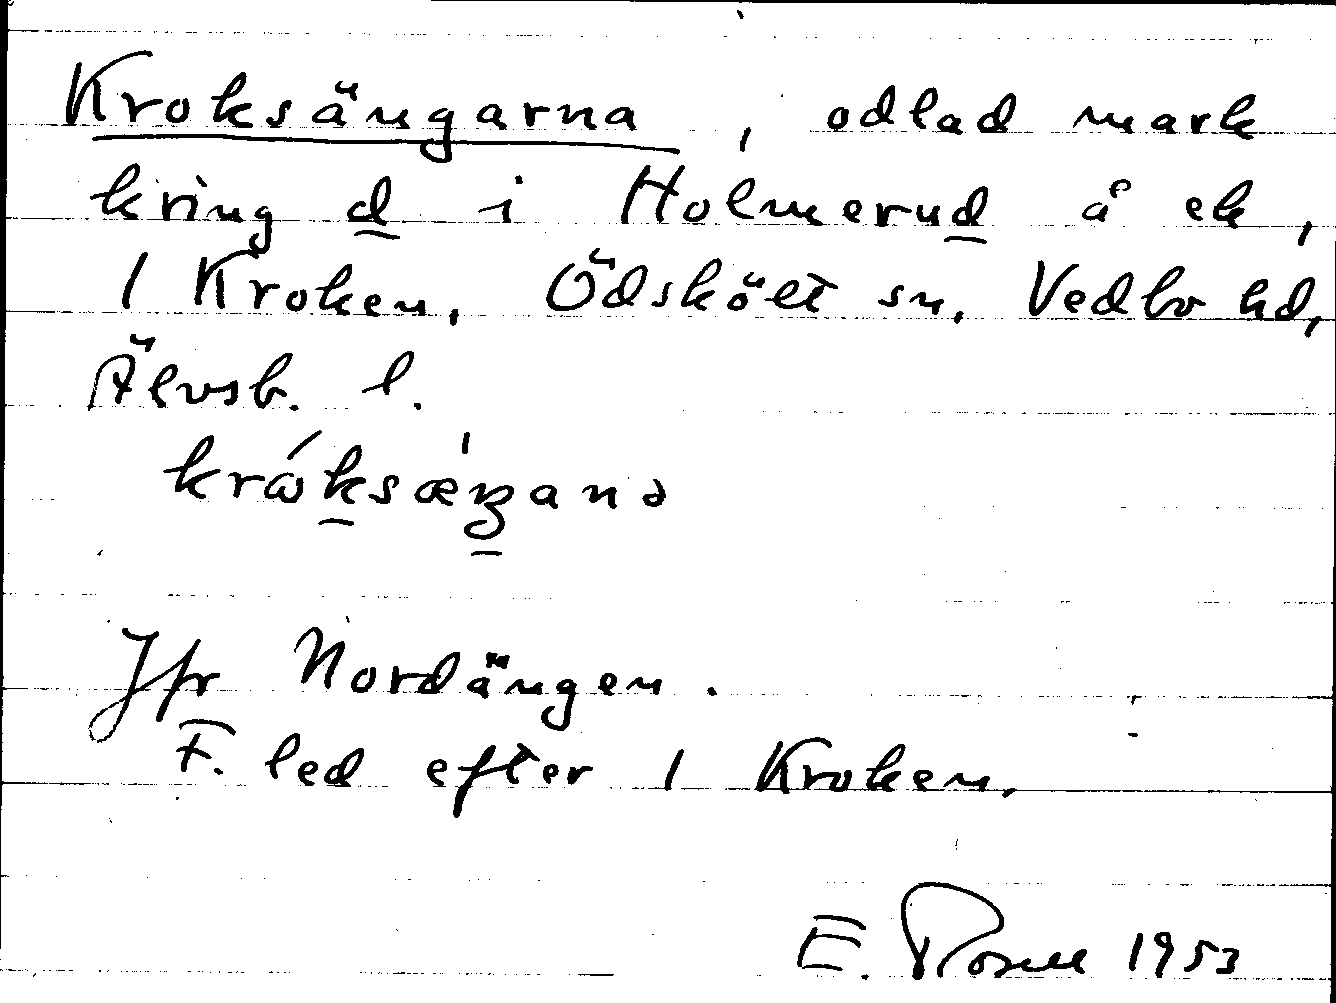 Kroksängarna, odlad mark
kring d i Holmerud å ek,
1 Kroken, Ödskölt sn, Vedbo hd,
Älvsb. l.
krɷ́ksæ̀ŋanə
Jfr Nordängen.
F. led efter 1 Kroken.
E. Rosell 1953